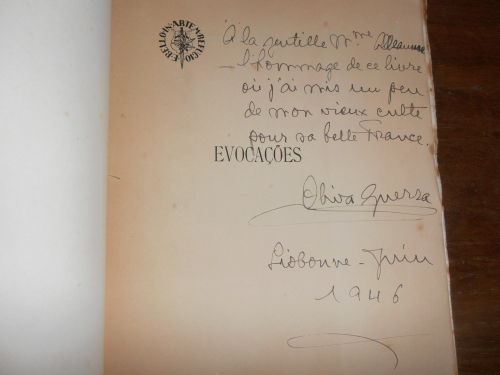 E·BELLO·IN·ARTEM·REFUGIO
À la gentille Mme
– l'hommage de ce livre
où j'ai mis un peu
de mon vieux culte
pour sa belle France.
EVOCAÇÕES
Oliva Guerra
Lisbonne – Juin
1946